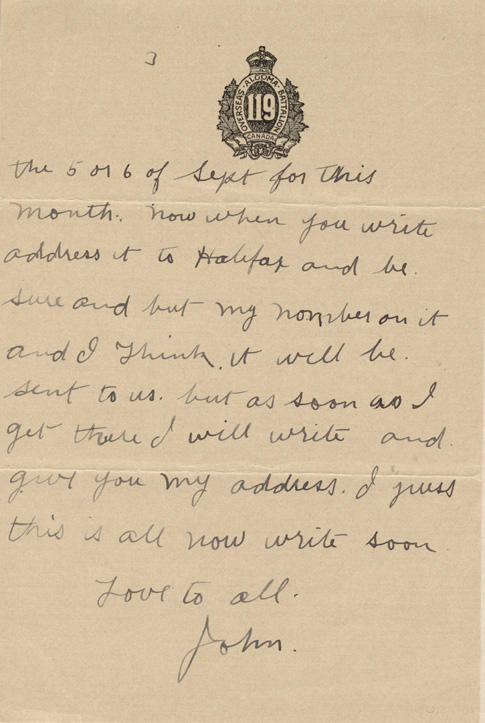 3
OVERSEAS · ALGOMA · BATTALION
119
CANADA
the 5 or 6 of Sept for this
month. now when you write
address it to Halifax and be.
sure and but my nomber on it
and I Think, it will be.
sent to us. but as soon as I
get there I will write and.
give you my address. I guss
this is all now write soon
Love to all.
John.